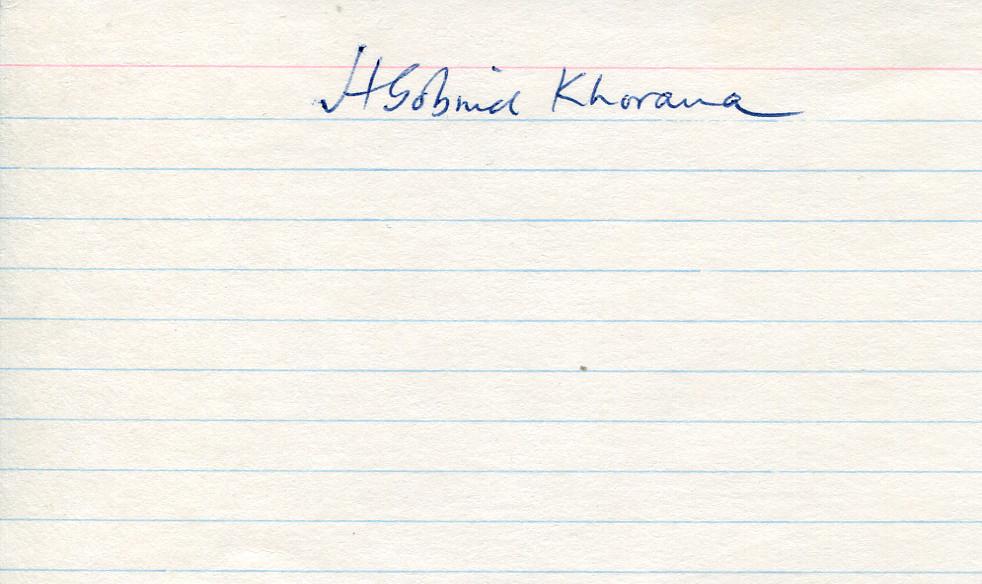 H Gobind Khorana